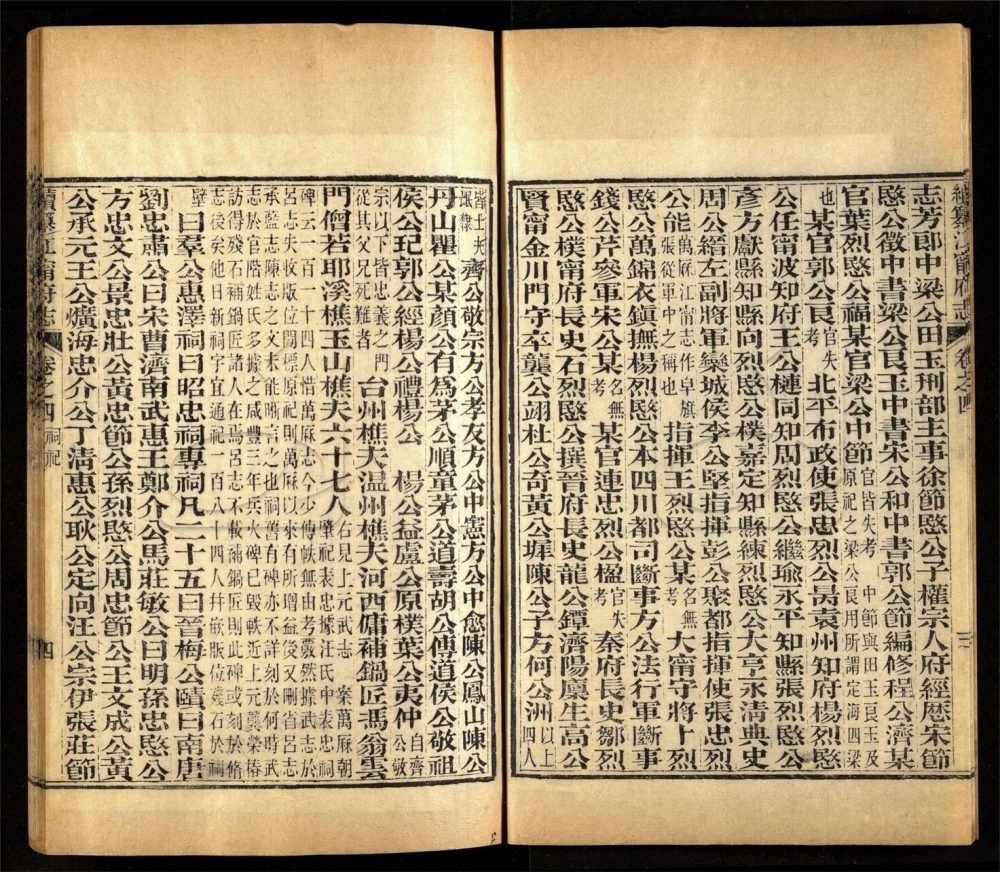 續纂江甯府志 卷之四 三
志芳郎中梁公田玉刑部主事徐節愍公子權宗人府經歷宋節
愍公徵中書梁公良玉中書宋公和中書郭公節編修程公濟某
官葉烈愍公福某官梁公中節官皆失考中節與田玉良玉及原祀之梁公良用所謂定海四梁
也某官郭公良官失考北平布政使張忠烈公昺袁州知府楊烈愍
公任甯波知府王公槤同知周烈愍公繼瑜永平知縣張烈愍公
彥方獻縣知縣向烈愍公樸嘉定知縣練烈愍公大亨永清典史
周公縉左副將軍欒城侯李公堅指揮彭公聚都指揮使張忠烈
公能萬厤江甯志作皁旗張從軍中之稱也指揮王烈愍公某名無考大甯守將卜烈
愍公萬錦衣鎮撫楊烈愍公本四川都司斷事方公法行軍斷事
錢公芹參軍宋公某名無考某官連忠烈公楹官失考秦府長史鄒烈
愍公樸甯府長史石烈愍公撰晉府長史龍公鐔濟陽廩生高公
賢甯金川門守卒龔公翊杜公奇黃公墀陳公子方何公洲以上四人
皆士大夫氓隸齊公敬宗方公孝友方公中憲方公中愈陳公鳳山陳公
丹山瞿公某顏公有爲茅公順童茅公道壽胡公傳道侯公敬祖
侯公玘郭公經楊公禮楊公 楊公益盧公原樸葉公夷仲自齊公敬
宗以下皆忠義之門從其父兄死難者台州樵夫温州樵夫河西傭補鍋匠馮翁雲
門僧若耶溪樵玉山樵夫六十七人右見上元武志 案萬厤朝肇祀表忠據汪氏中表忠祠
碑云一百一十四人惜萬厤志今少傳帙無由考覈然據武志於呂志失收版位闕標原祀則萬厤以來有所增益後又刪省呂志
承藍志陳志之文又未能晰言之也祠舊有碑亦不詳刻於何時武志於官階姓氏多據之咸豐三年兵火碑已毀軼近上元龔榮椿
訪得殘石補鍋匠諸人在焉呂志不載補鍋匠則此碑或刻於脩志後矣他日新祠宇宜通祀一百八十四人幷嵌版位羨石於祠
壁曰羣公惠澤祠曰昭忠祠專祠凡二十五曰晉梅公賾曰南唐
劉忠肅公曰宋曹濟南武惠王鄭介公馬莊敏公曰明孫忠愍公
方忠文公景忠壯公黃忠節公孫烈愍公周忠節公王文成公黃
公承元王公爌海忠介公丁清惠公耿公定向汪公宗伊張莊節
續纂江甯府志 卷之四 祠祀 四